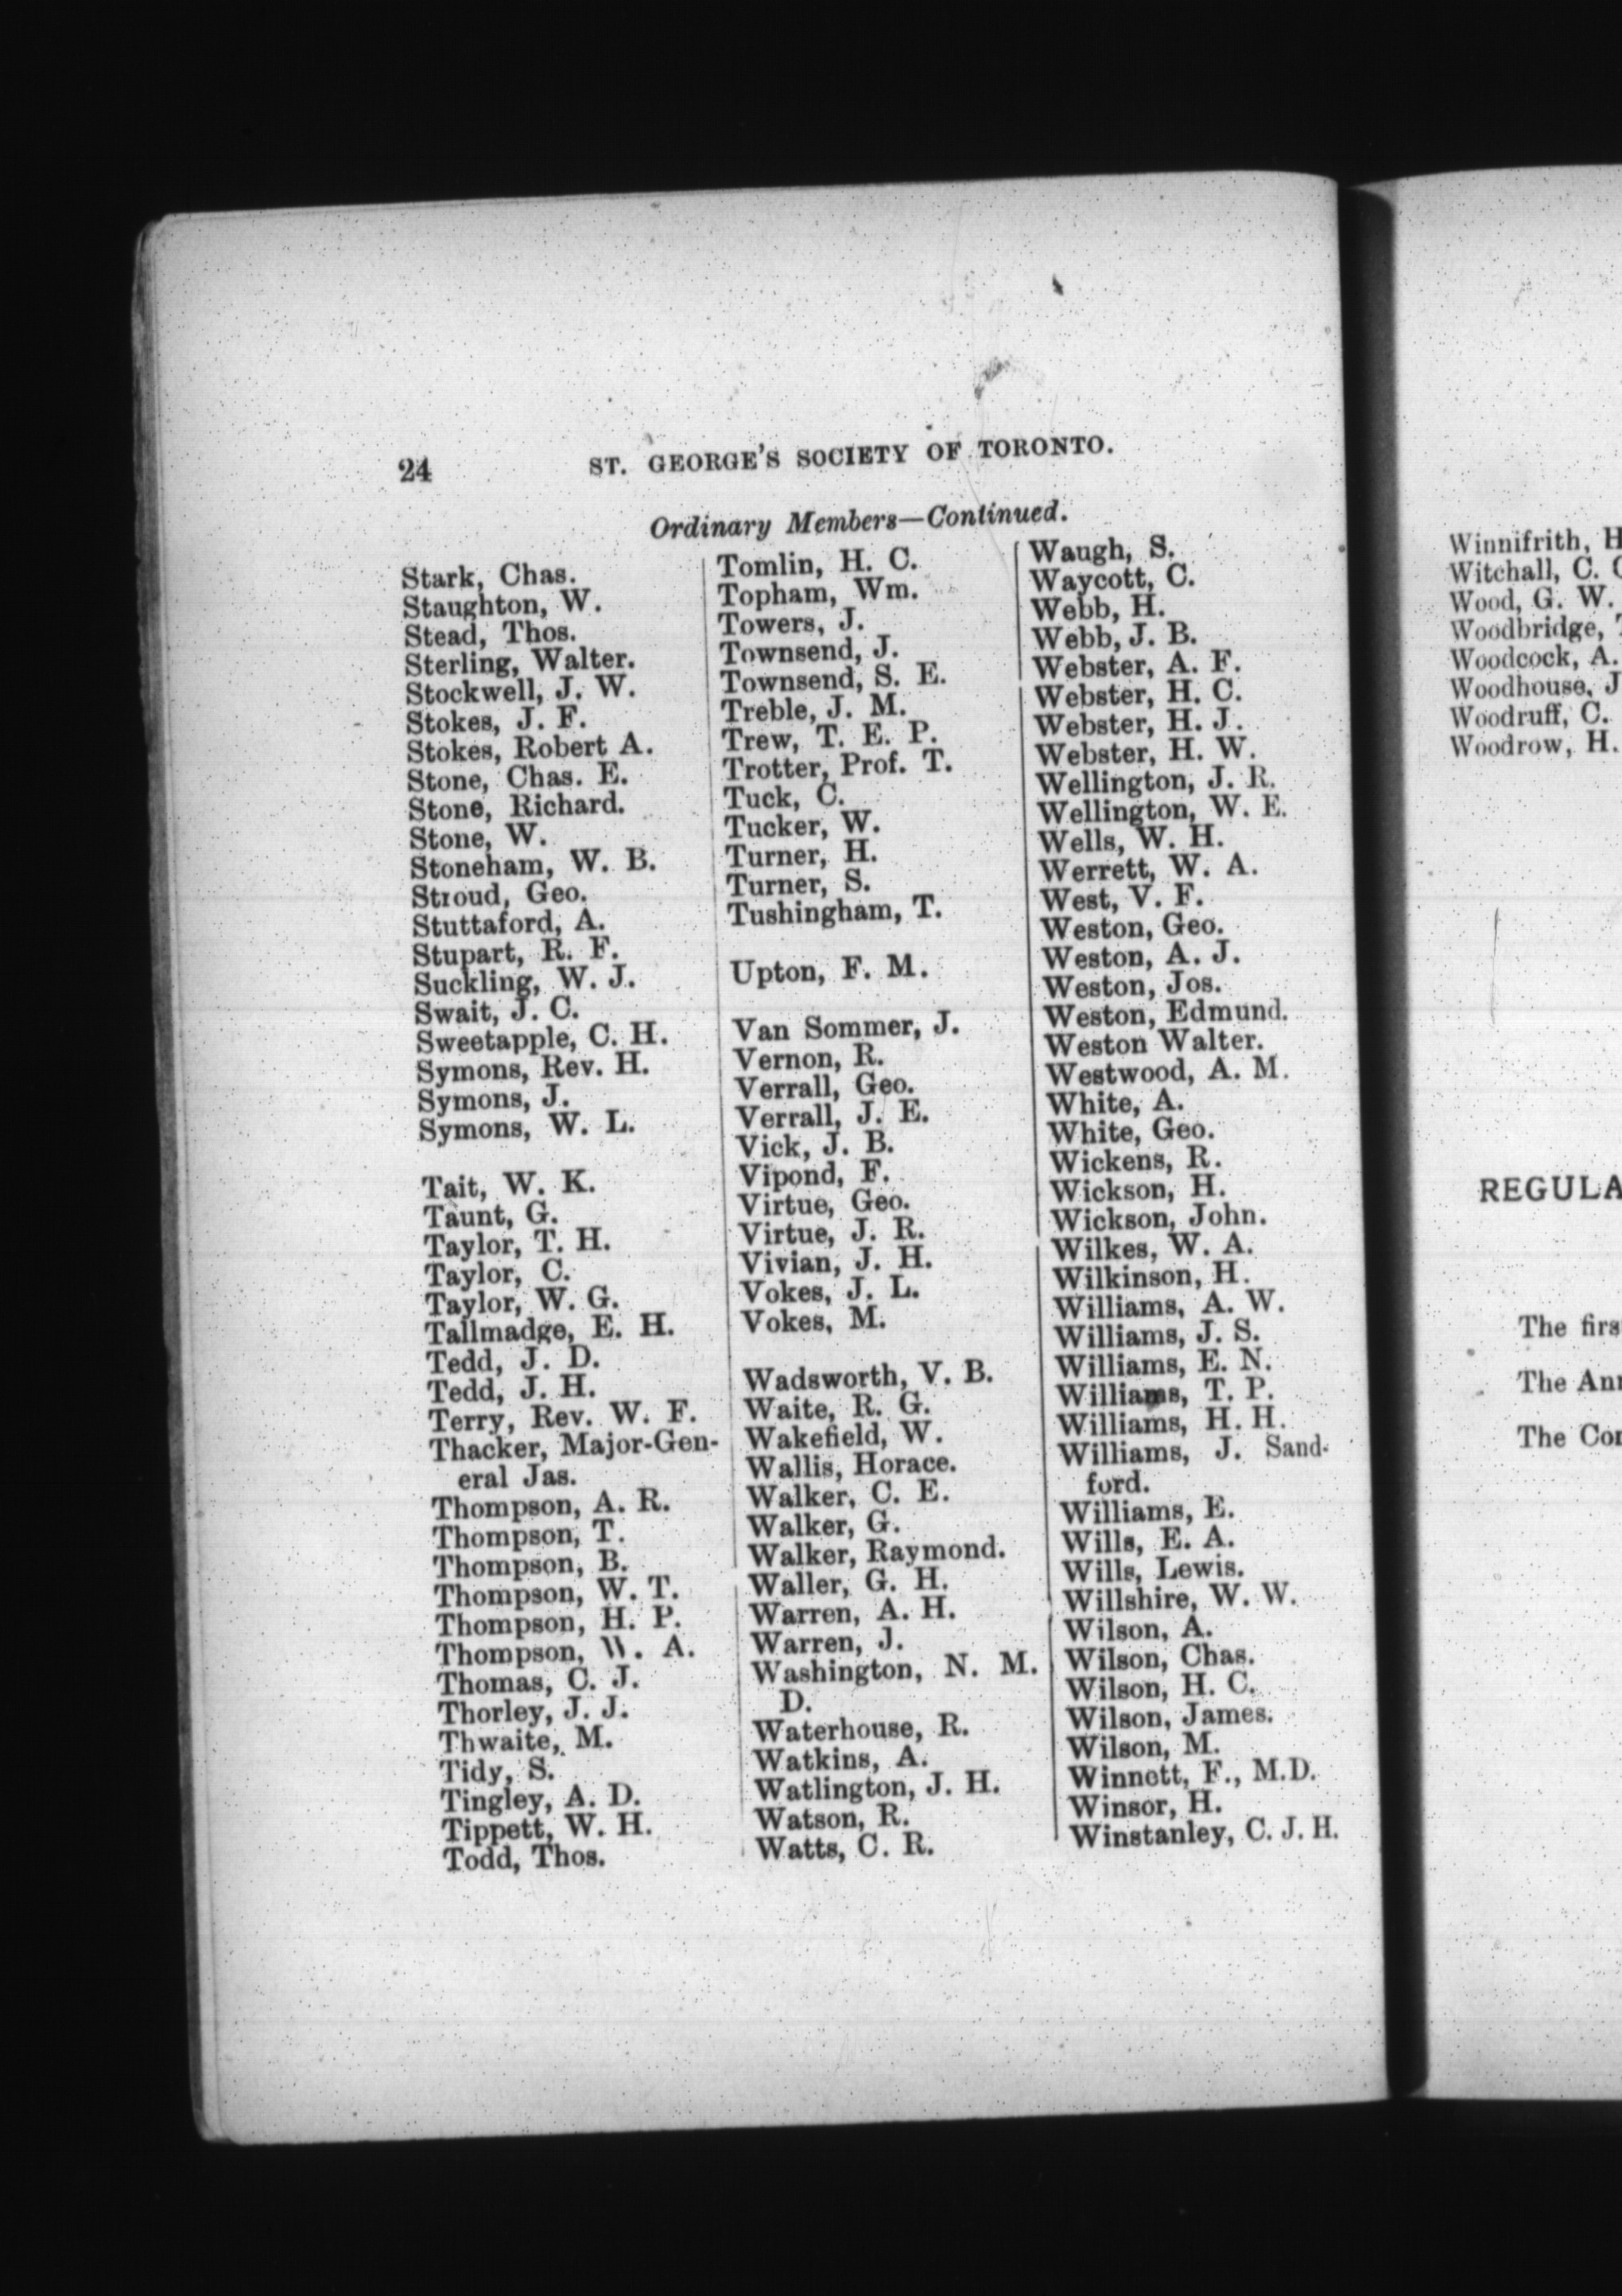 24
ST. GEORGE'S SOCIETY OF TORONTO.
Ordinary Members—Continued.
Stark, Chas.
Staughton, W.
Stead, Thos.
Sterling, Walter.
Stockwell, J. W.
Stokes, J. F.
Stokes, Robert A.
Stone, Chas. E.
Stone, Richard.
Stone, W.
Stoneham, W. B.
Stroud, Geo.
Stuttaford, A.
Stupart, R. F.
Suckling, W. J.
Swait, J. C.
Sweetapple, C. H.
Symons, Rev. H.
Symons, J.
Symons, W. L.
Tait, W. K.
Taunt, G.
Taylor, T. H.
Taylor, C.
Taylor, W. G.
Tallmadge, E. H.
Tedd, J. D.
Tedd, J. H.
Terry, Rev. W. F.
Thacker, Major-Gen-
eral Jas.
Thompson, A. R.
Thompson, T.
Thompson, B.
Thompson, W. T.
Thompson, H. P.
Thompson, W. A.
Thomas, C. J.
Thorley, J. J.
Thwaite, M.
Tidy, S.
Tingley, A. D.
Tippett, W. H.
Todd, Thos.
Tomlin, H. C.
Topham, Wm.
Towers, J.
Townsend, J.
Townsend, S. E.
Treble, J. M.
Trew, T. E. P.
Trotter, Prof. T.
Tuck, C.
Tucker, W.
Turner, H.
Turner, S.
Tushingham, T.
Upton, F. M.
Van Sommer, J.
Vernon, R.
Verrall, Geo.
Verrall, J. E.
Vick, J. B.
Vipond, F.
Virtue, Geo.
Virtue, J. R.
Vivian, J. H.
Vokes, J. L.
Vokes, M.
Wadsworth, V. B.
Waite, R. G.
Wakefield, W.
Wallis, Horace.
Walker, C. E.
Walker, G.
Walker, Raymond.
Waller, G. H.
Warren, A. H.
Warren, J.
Washington, N. M.
D.
Waterhouse, R.
Watkins, A.
Watlington, J. H.
Watson, R.
Watts, C. R.
Waugh, S.
Waycott, C.
Webb, H.
Webb, J. B.
Webster, A. F.
Webster, H. C.
Webster, H. J.
Webster, H. W.
Wellington, J. R.
Wellington, W. E.
Wells, W. H.
Werrett, W. A.
West, V. F.
Weston, Geo.
Weston, A. J.
Weston, Jos.
Weston, Edmund.
Weston Walter.
Westwood, A. M.
White, A.
White, Geo.
Wickens, R.
Wickson, H.
Wickson, John.
Wilkes, W. A.
Wilkinson, H.
Williams, A. W.
Williams, J. S.
Williams, E. N.
Williams, T. P.
Williams, H. H.
Williams, J. Sand-
ford.
Williams, E.
Wills, E. A.
Wills, Lewis.
Willshire, W. W.
Wilson, A.
Wilson, Chas.
Wilson, H. C.
Wilson, James.
Wilson, M.
Winnett, F., M.D.
Winsor, H.
Winstanley, C. J. H.
Winnifrith, H
Witchall, C.
Wood, G. W.
Woodbridge,
Woodcock, A.
Woodhouse, J
Woodruff, C.
Woodrow, H.
REGULA
The firs
The Ann
The Com